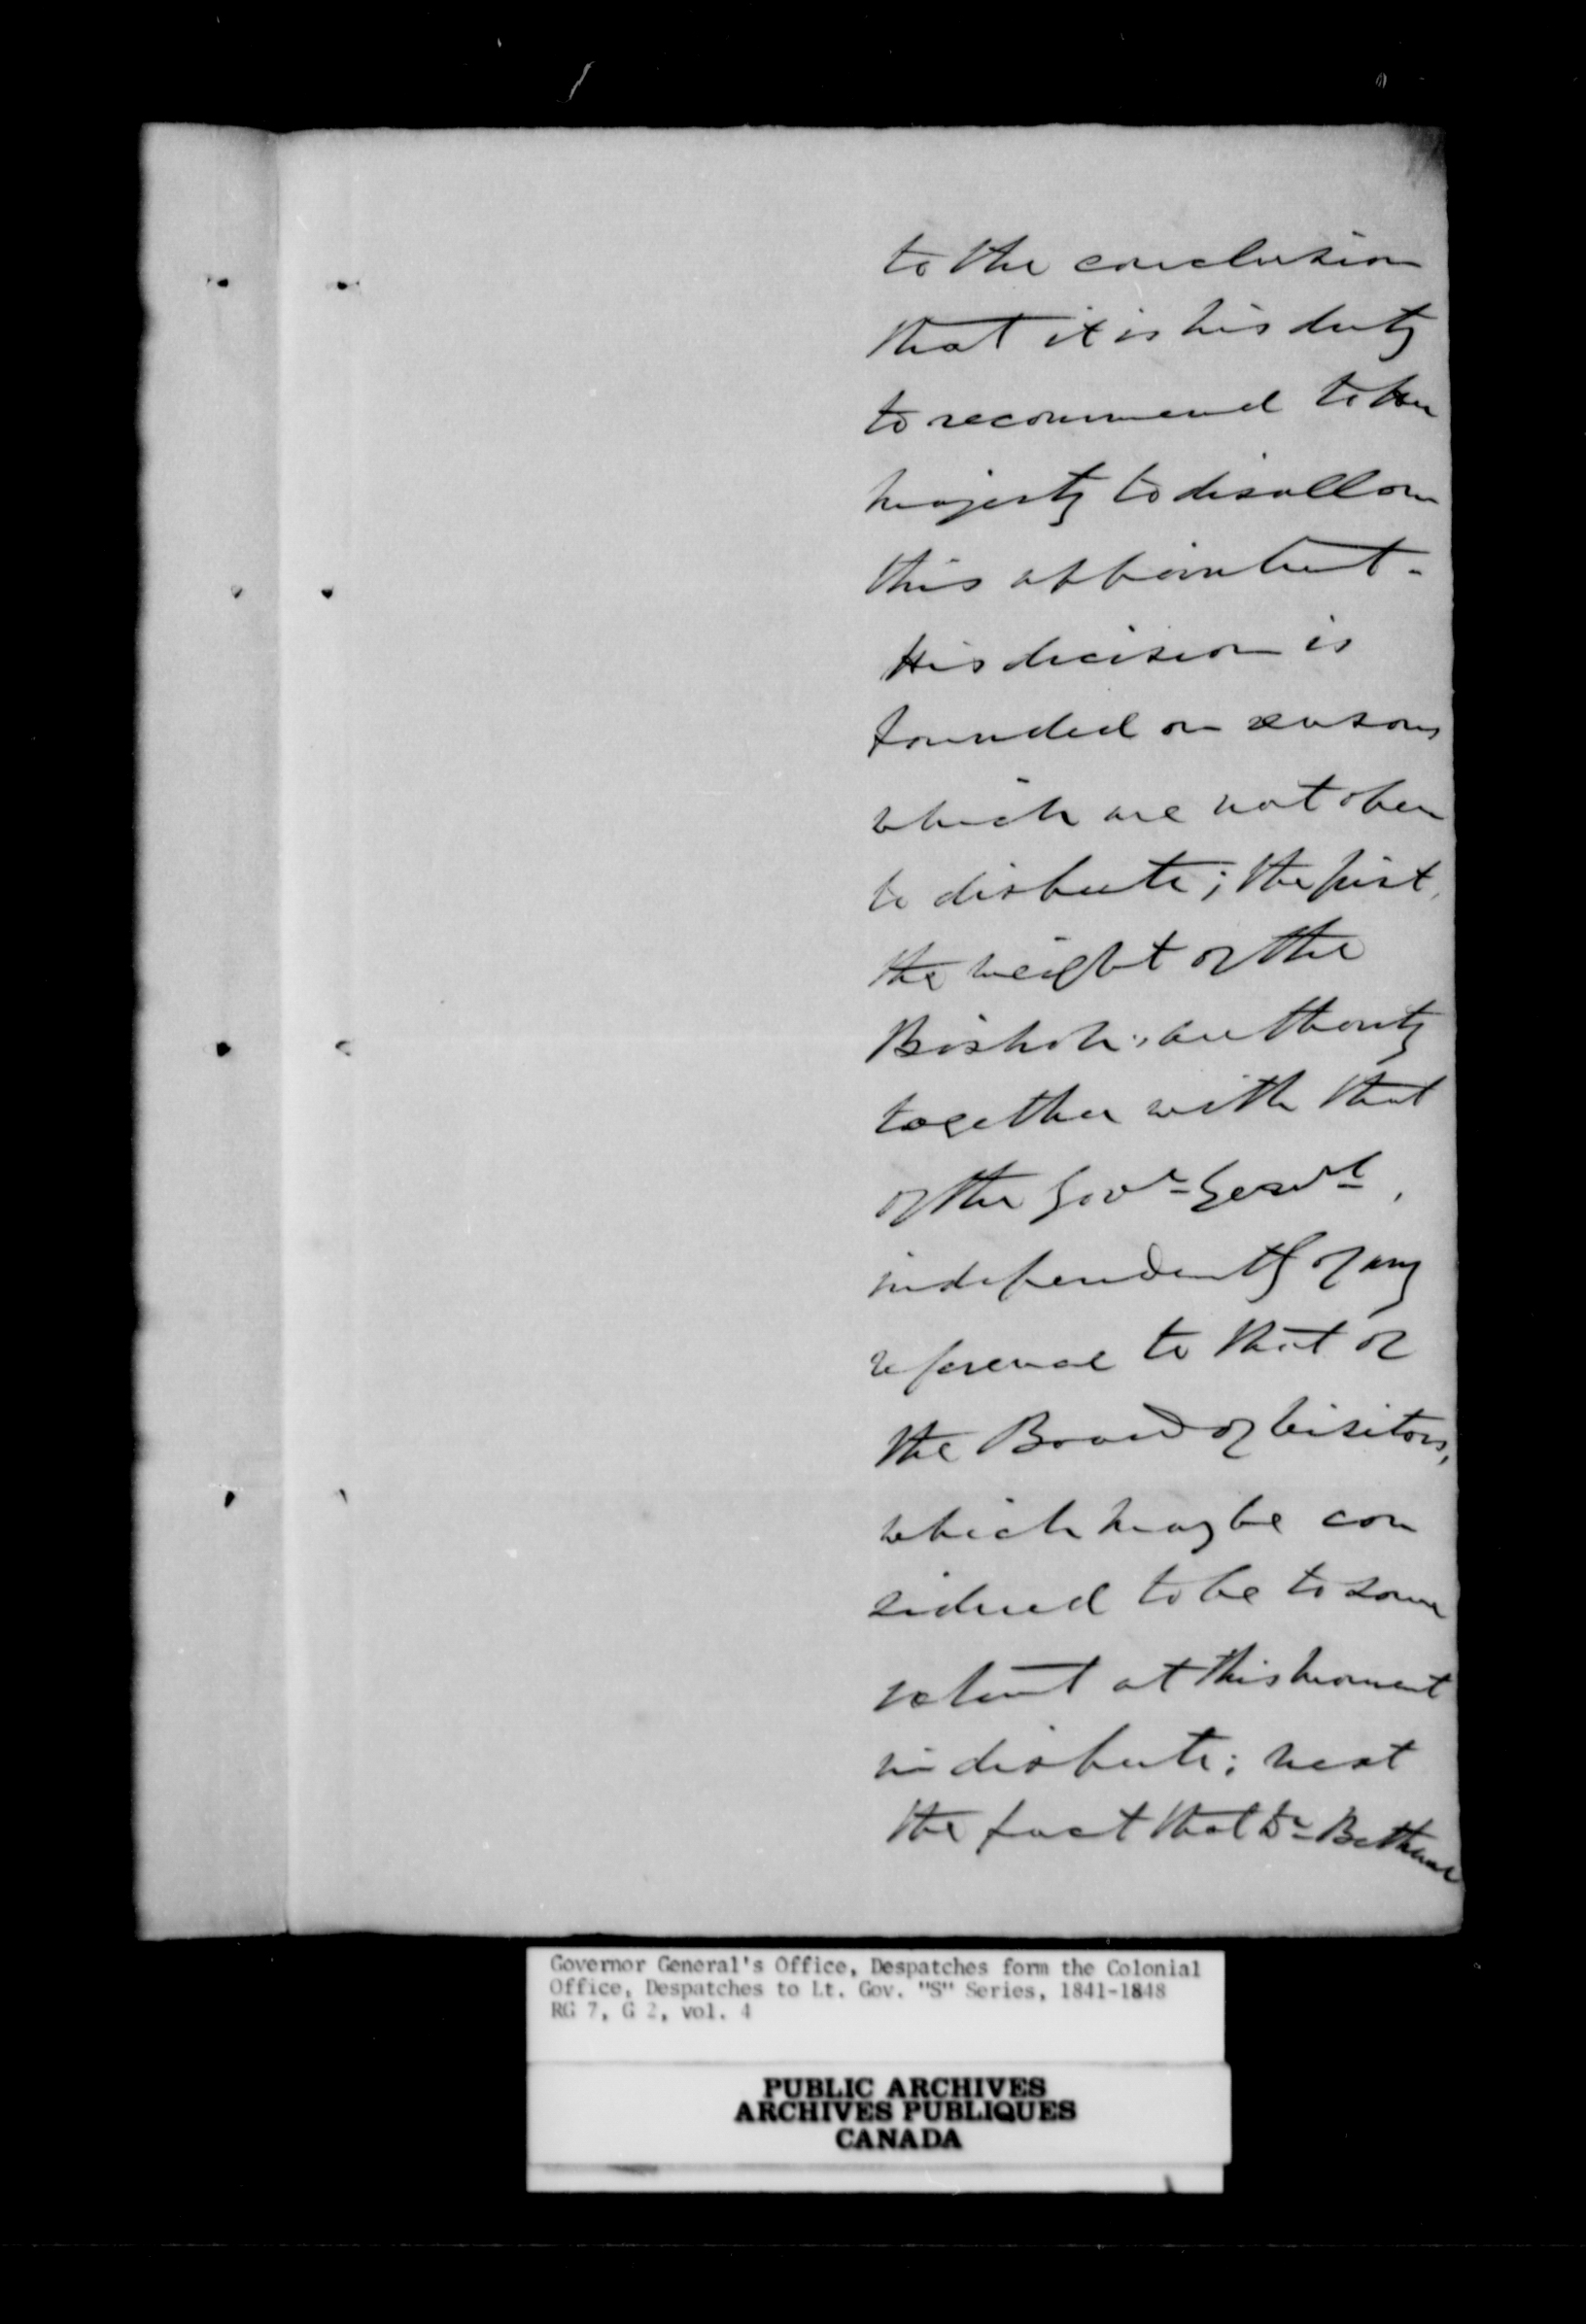 to the conclusion
that it is his duty
to recommend to Her
Majesty to disallow
this appointmt.
His decision is
founded on reasons
which are not open
to dispute; the first,
the weight of the
Bishop's authority
together with that
of the Govr. Genral,
independently of any
reference to that of
the Board of Visitors,
which may be con
sidered to be to some
extent at this moment
in dispute; next
the fact that Dr. Bethune
Governor General's Office, Despatches form the Colonial
Office, Despatches to Lt. Gov. "S" Series, 1841-1848
RG 7, G 2, vol. 4
PUBLIC ARCHIVES
ARCHIVES PUBLIQUES
CANADA